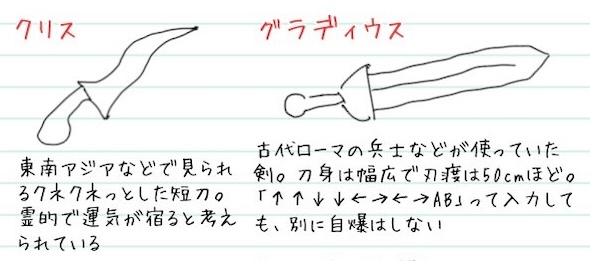 クリス
東南アジアなどで見られ
るクネクネっとした短刀。
霊的で運気が宿ると考え
られている
グラディウス
古代ローマの兵士などが使っていた
剣。刀身は幅広で刃渡は50cmほど。
「↑↑↓↓←→←→AB」って入力して
も、別に自爆はしない